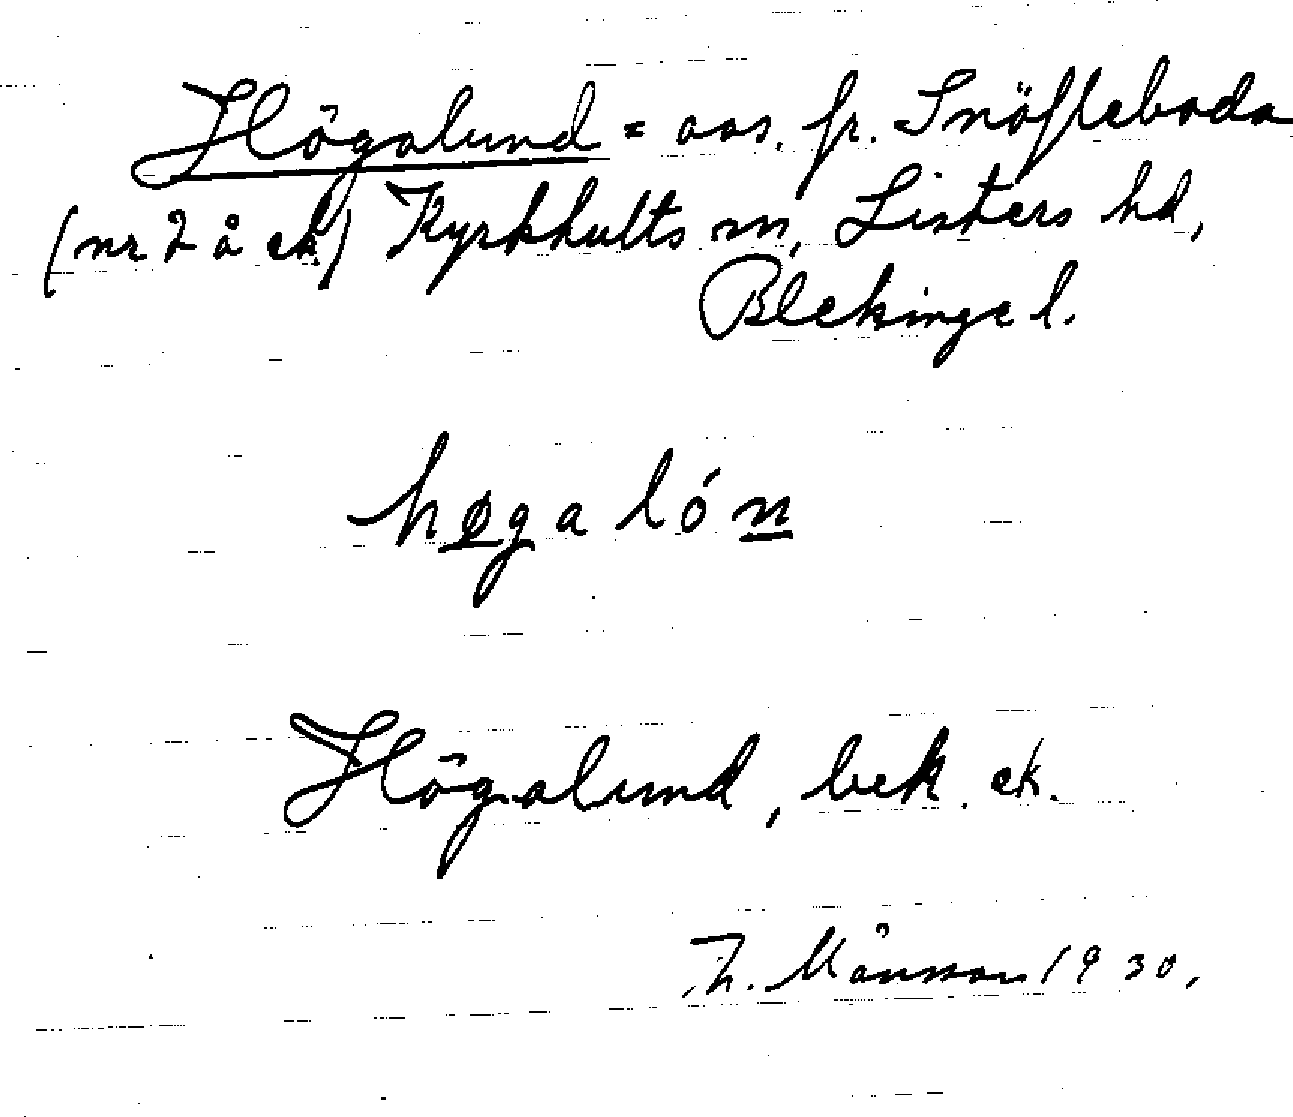 Högalund = avs. fr. Snöfleboda
(nr 2 å ek) Kyrkhults sn, Listers hd,
Blekinge l.
høga lón
Högalund, bek. ek.
h. Månsson 1930.